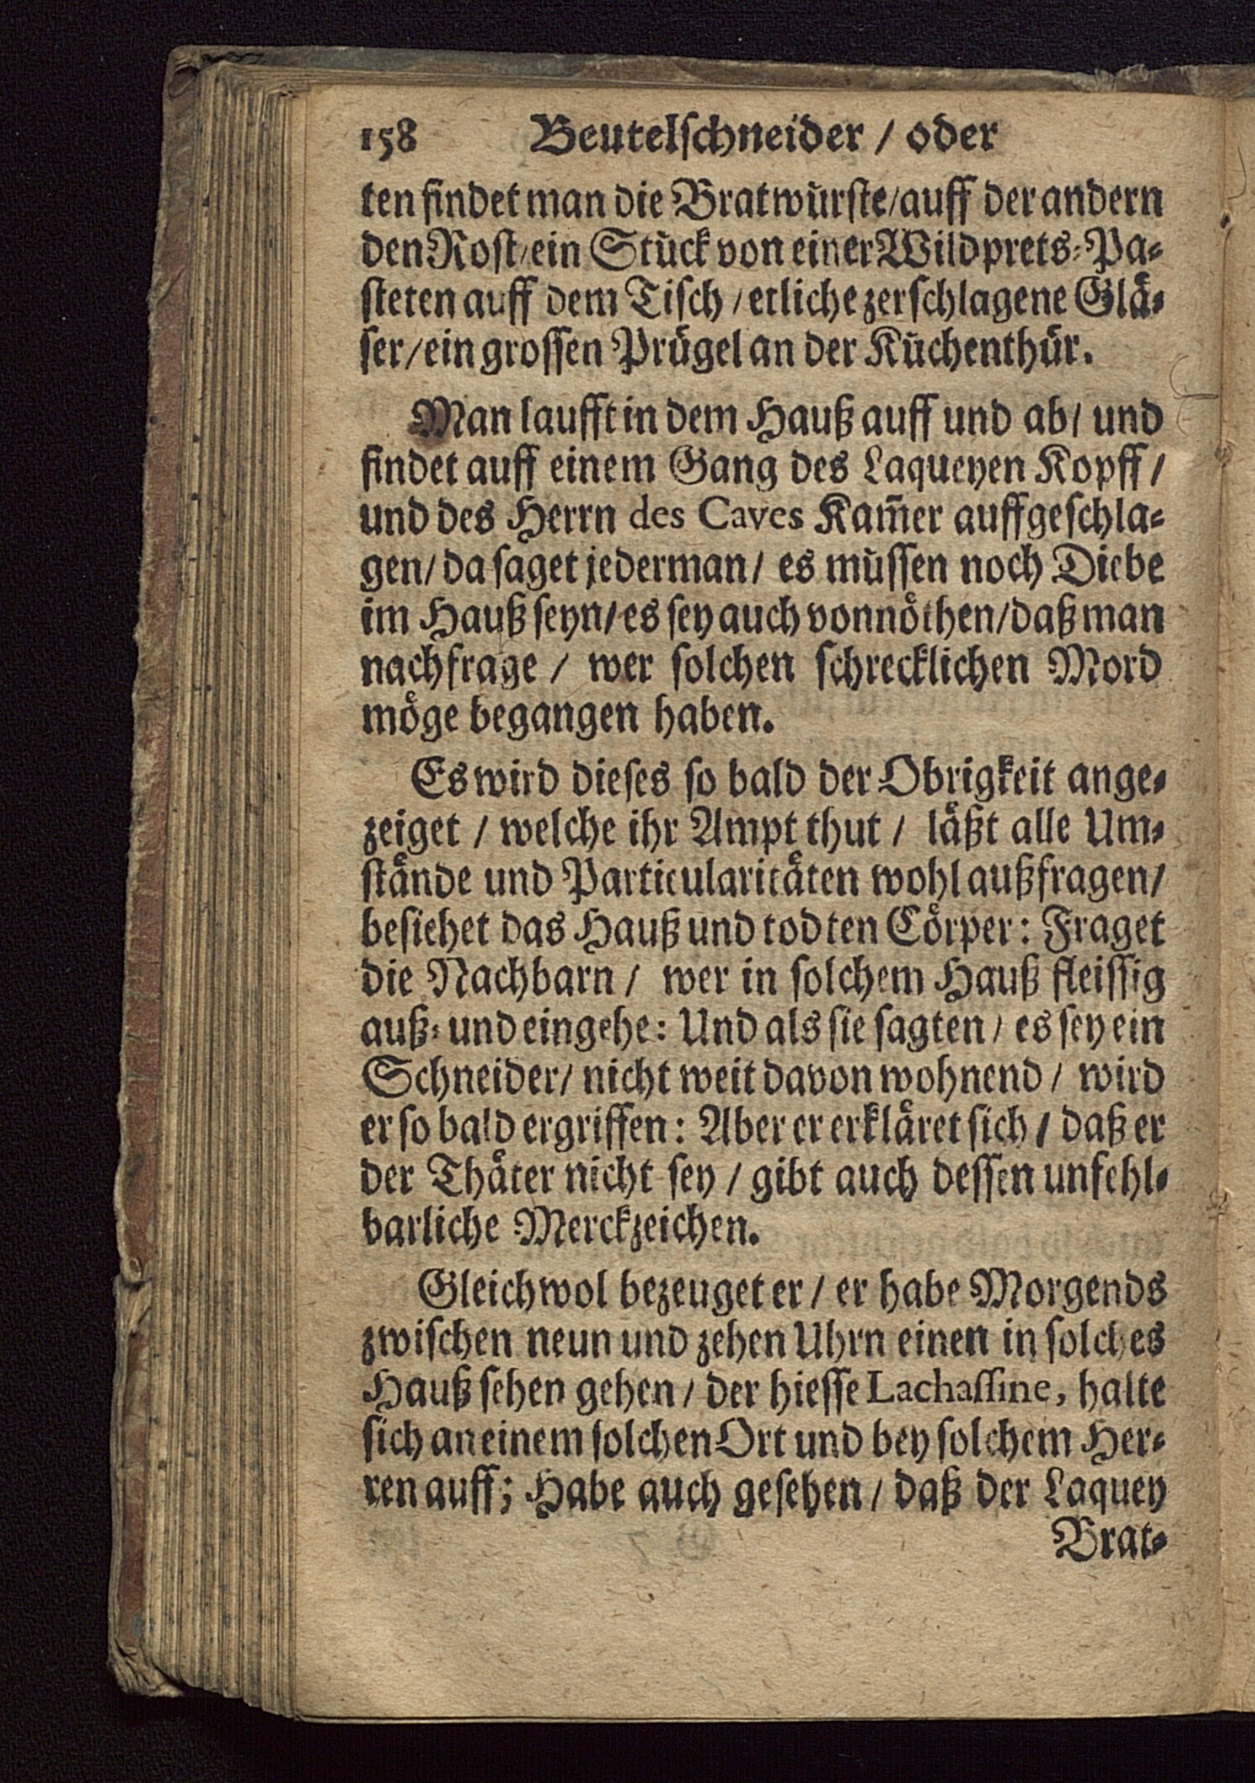 158 Beutelschneider / oder
ten findet man die Bratwürste/auff der andern
den Rost/ein Stück von einer Wildprets-Pa-
steten auff dem Tisch / etliche zerschlagene Glä-
ser/ein grossen Prügel an der Küchenthür.
Man laufft in dem Hauß auff und ab/ und
findet auff einem Gang des Laqueyen Kopff /
und des Herrn des Caves Kam̃er auffgeschla-
gen/ da saget jederman/ es müssen noch Diebe
im Hauß seyn/ es sey auch vonnöthen/daß man
nachfrage / wer solchen schrecklichen Mord
möge begangen haben.
Es wird dieses so bald der Obrigkeit ange-
zeiget / welche ihr Ampt thut / läßt alle Um-
stände und Particularitäten wohl außfragen/
besiehet das Hauß und todten Cörper: Fraget
die Nachbarn / wer in solchem Hauß fleissig
auß- und eingehe: Und als sie sagten / es sey ein
Schneider/ nicht weit davon wohnend / wird
er so bald ergriffen: Aber er erkläret sich / daß er
der Thäter nicht sey / gibt auch dessen unfehl-
barliche Merckzeichen.
Gleichwol bezeuget er / er habe Morgends
zwischen neun und zehen Uhrn einen in solches
Hauß sehen gehen / der hiesse Lachassine, halte
sich an einem solchen Ort und bey solchem Her-
ren auff; Habe auch gesehen / daß der Laquey
Brat-